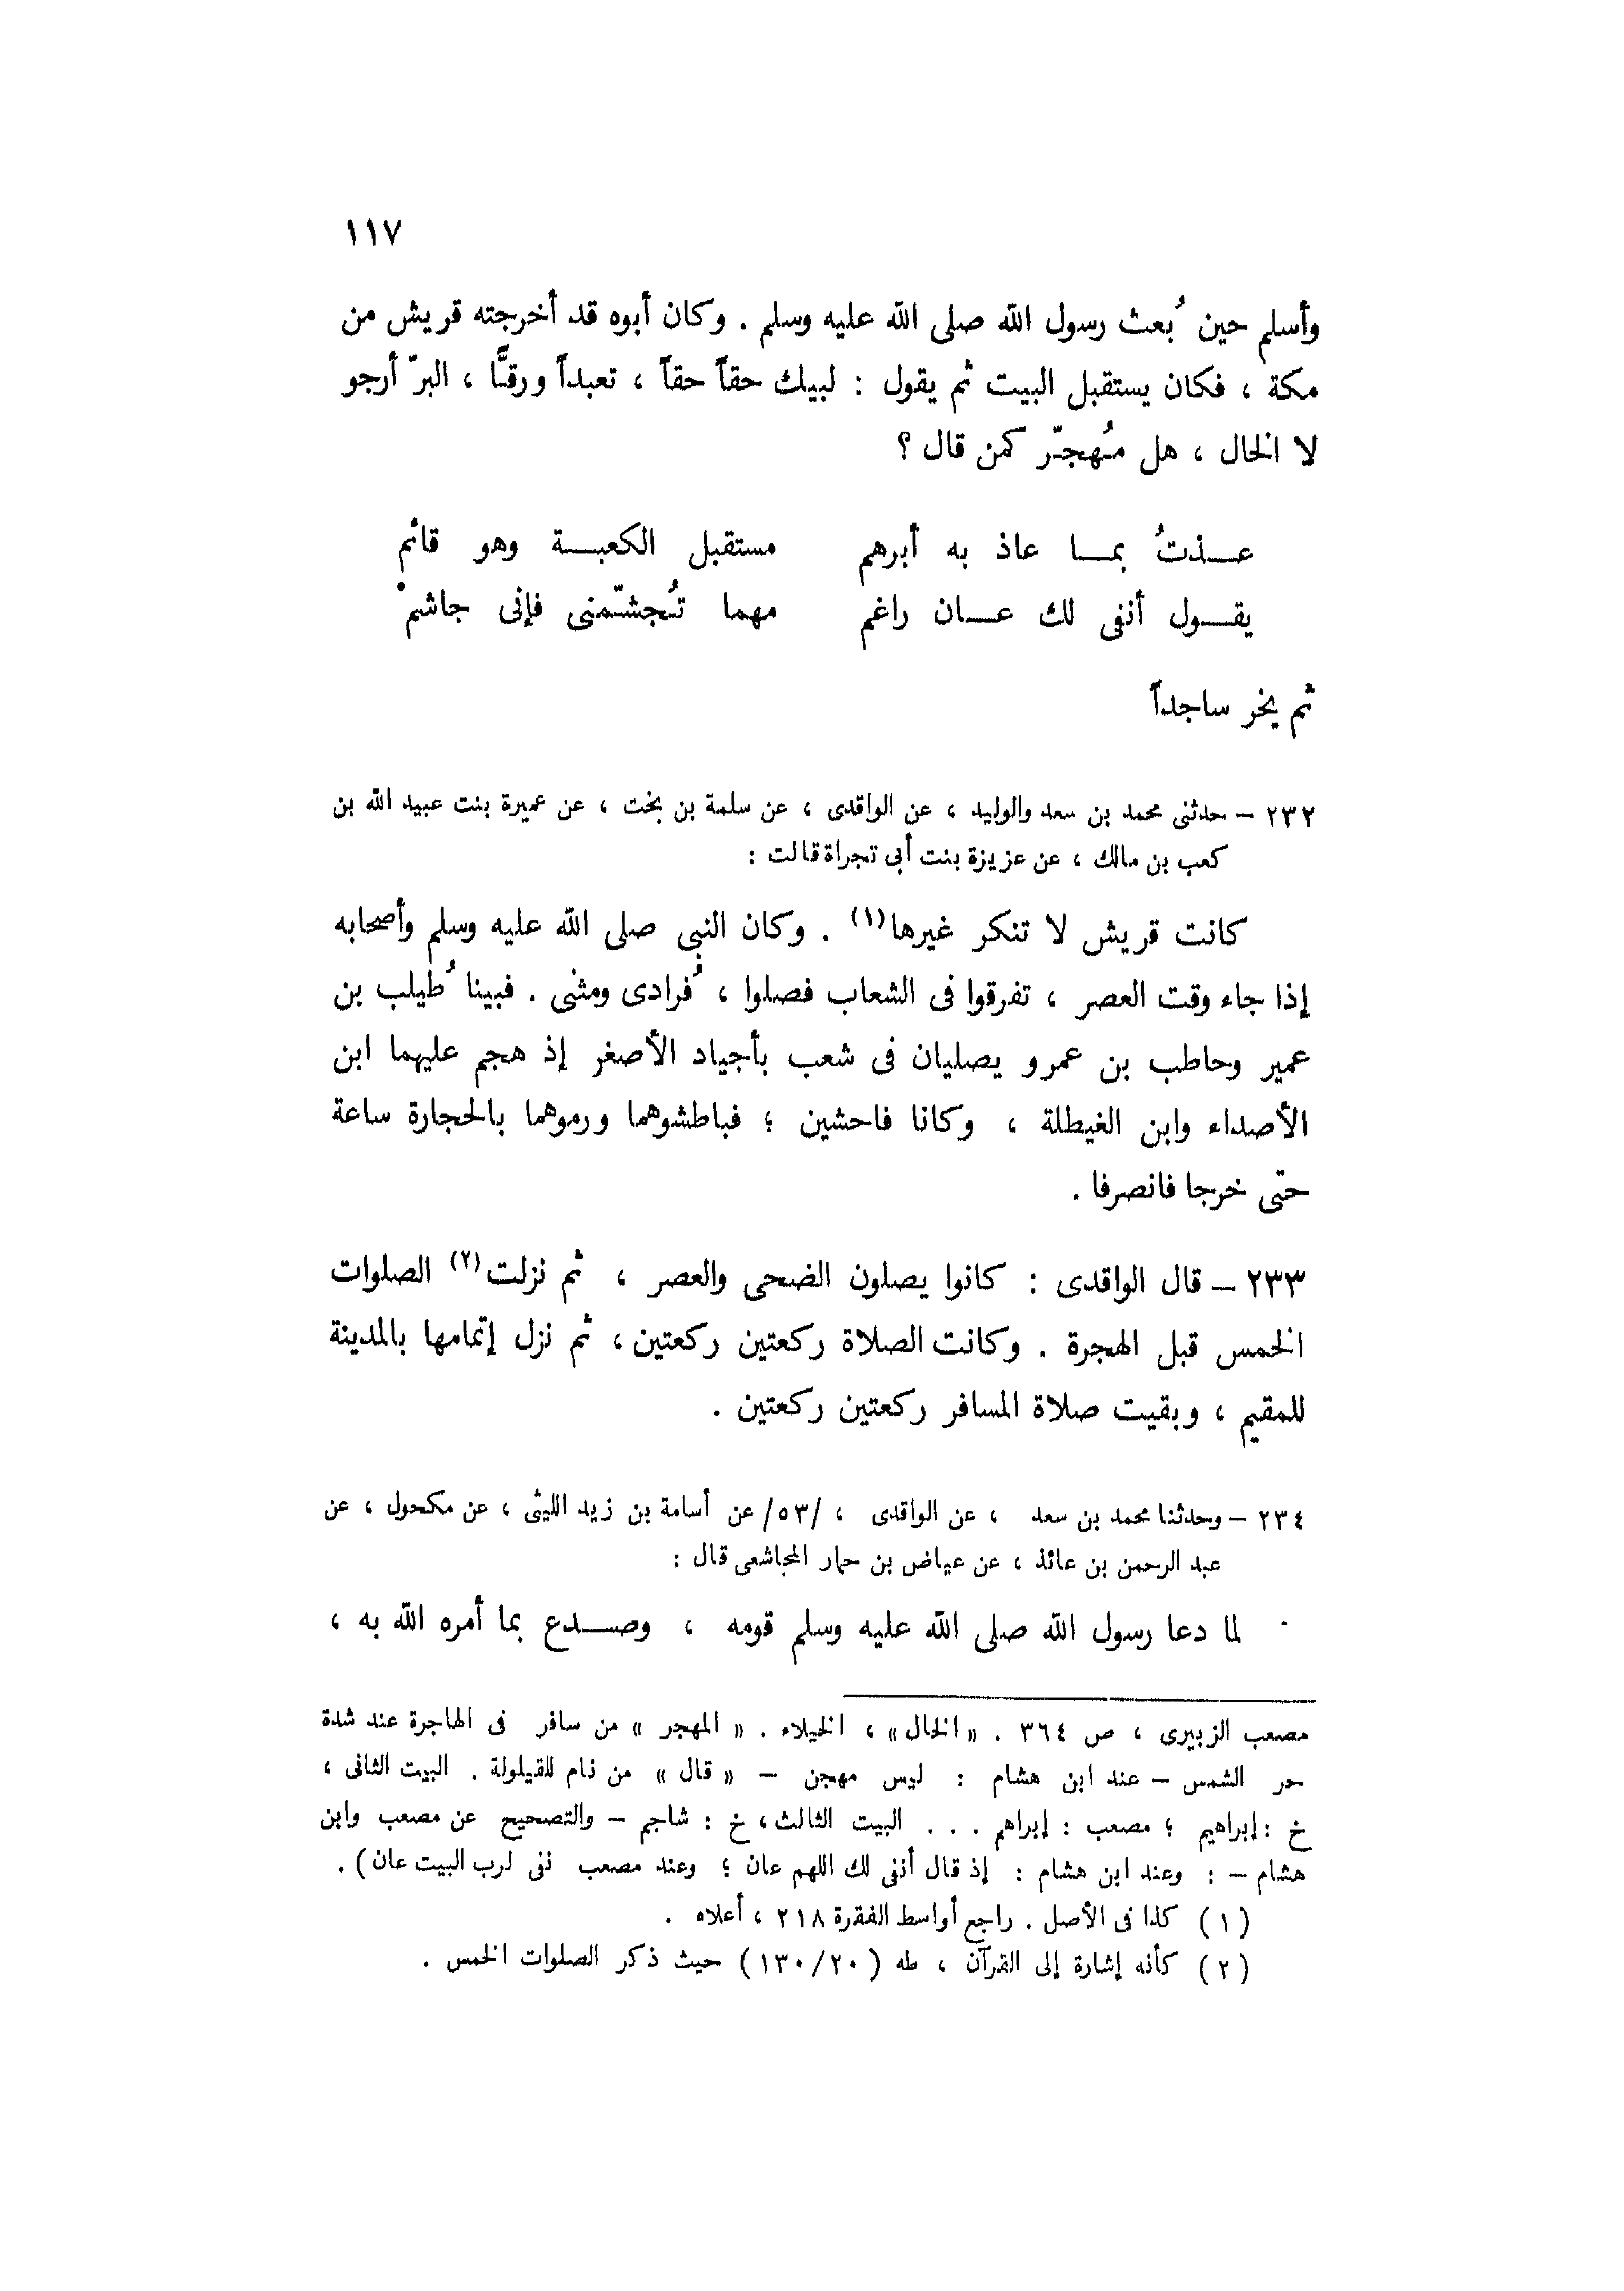 ١١٧
وأسلم حين بُعث رسول الله صلى الله عليه وسلم . وكان أبوه قد أخرجته قريش من
مكة ، فكان يستقبل البيت ثم يقول : لبيك حقاً حقاً ، تعبداً ورقـًّا ، البرّ أرجو
لا الخال ، هل مُهجـّر كمن قال ؟
عـــذتُ بمـــا عاذ به أبرهم مستقبل الكعبـــة وهو قائم
يقـــول أنفى لك عـــان راغم مهما تُجشـّمنى فإنى جاشمْ
ثم يخر ساجداً
٢٣٢ – حدثنى محمد بن سعد والوليد ، عن الواقدى ، عن سلمة بن بخت ، عن عميرة بنت عبيد الله بن
كعب بن مالك ، عن عزيزة بنت أبى تجراة قالت :
كانت قريش لا تنكر غيرها(١) . وكان النبى صلى الله عليه وسلم وأصحابه
إذا جاء وقت العصر ، تفرقوا فى الشعاب فصلوا ، فُرادى ومثنى . فبينا طُيلب بن
عمير وحاطب بن عمرو يصليان فى شعب بأجياد الأصغر إذ هجم عليهما ابن
الأصداء وابن الغيطلة ، وكانا فاحشين ؛ فباطشوهما ورموهما بالحجارة ساعة
حتى خرجا فانصرفا .
٢٣٣ – قال الواقدى : كانوا يصلون الضحى والعصر ، ثم نزلت(٢) الصلوات
الخمس قبل الهجرة . وكانت الصلاة ركعتين ركعتين ، ثم نزل إتمامها بالمدينة
للمقيم ، وبقيت صلاة المسافر ركعتين ركعتين .
٢٣٤ – وحدثنا محمد بن سعد ، عن الواقدى ، /٥٣/ عن أسامة بن زيد الليثى ، عن مكحول ، عن
عبد الرحمن بن عائذ ، عن عياض بن حمار المجاشعى قال :
لما دعا رسول الله صلى الله عليه وسلم قومه ، وصـــدع بما أمره الله به ،
مصعب الزبيرى ، ص ٣٦٤ . «الخال» ، الخيلاء . «المهجر» من سافر فى الهاجرة عند شدة
حر الشمس – عند ابن هشام : ليس مهجن – «قال» من نام للقيلولة . البيت الثانى ،
خ : إبراهيم ؛ مصعب : إبراهم . . . البيت الثالث ، خ : شاجم – والتصحيح عن مصعب وابن
هشام – : وعند ابن هشام : إذ قال أنفى لك اللهم عان ؛ وعند مصعب نفى لرب البيت عان) .
(١) كذا فى الأصل . راجع أواسط الفقرة ٢١٨ ، أعلاه .
(٢) كأنه إشارة إلى القرآن ، طه (١٣٠/٢٠) حيث ذكر الصلوات الخمس .